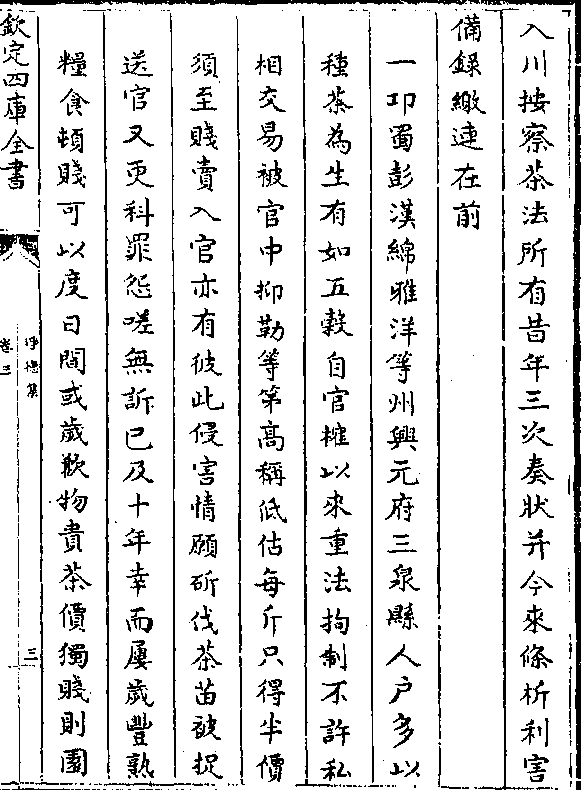 入川按察茶法所有昔年三次奏狀并今來條析利害
備録繳連在前
一卭蜀彭漢綿雅洋等州興元府三泉縣人户多以
種茶為生有如五穀自官榷以來重法拘制不許私
相交易被官中抑勒等第高稱低估每斤只得半價
須至賤賣入官亦有彼此侵害情願斫伐茶苗被捉
送官又更科罪怨嗟無訴已及十年幸而屢歲豐熟
糧食頓賤可以度日間或歲歉物貴茶價獨賤則園
欽定四庫全書
淨德集
卷三
三